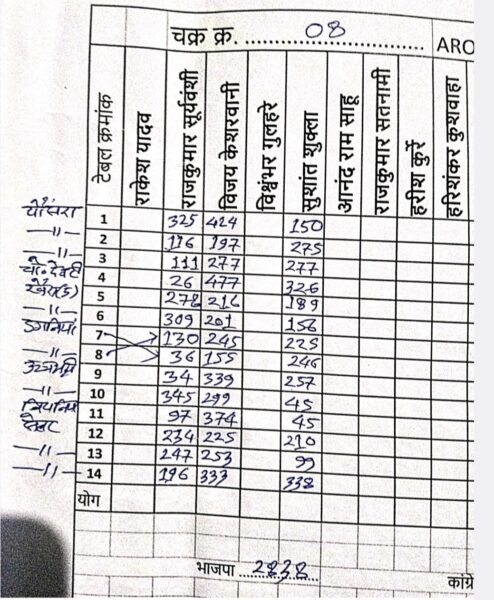 चक्र क्र. 08 ARO
टेबल क्रमांक राकेश यादव राजकुमार सूर्यवंशी विजय केशरवानी विश्वंभर गुलहरे सुशांत शुक्ला आनंद राम साहू राजकुमार सतनामी हरीश कुर्रे हरिशंकर कुशवाहा
1 325 424 150
-॥- 2 116 197 275
-॥- 3 111 277 277
4 26 477 326
5 278 216 189
-॥- 6 309 201 156
7 130 245 225
-॥- 8 36 155 246
9 34 339 257
-॥- 10 345 299 45
11 97 374 45
12 234 225 210
-॥- 13 247 253 99
-॥- 14 196 333 338
योग
भाजपा 2838 कांग्रे